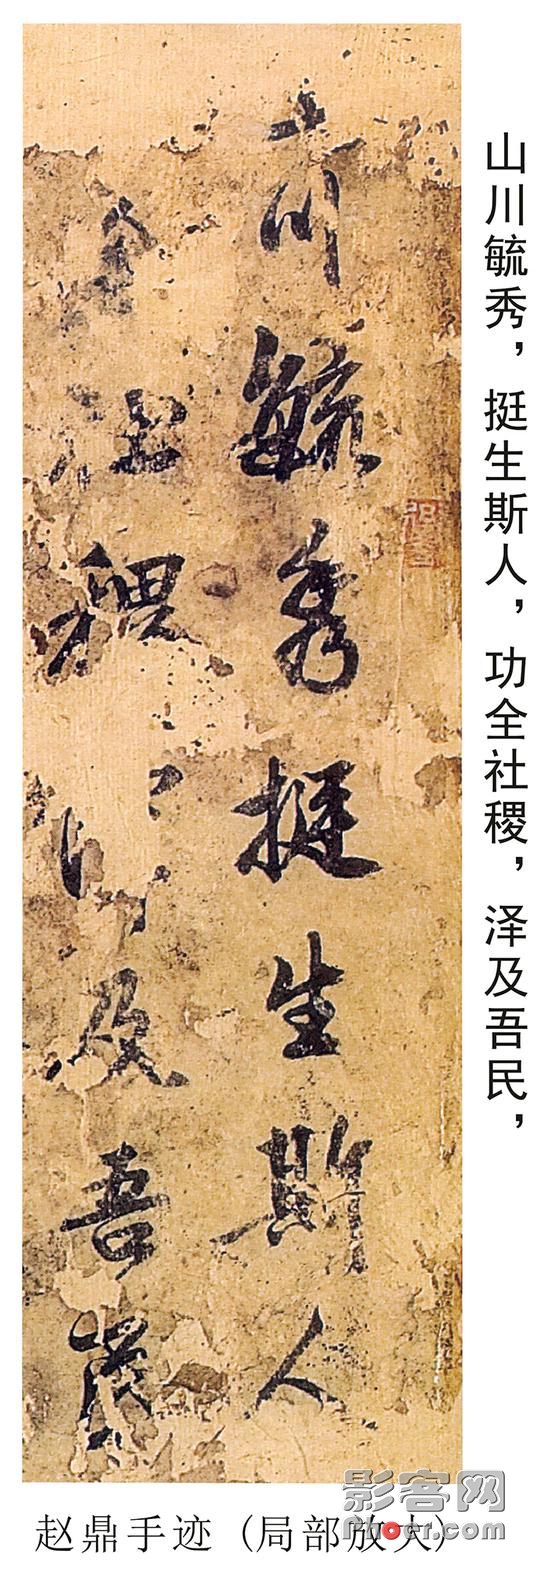 山川毓秀，挺生斯人，功全社稷，泽及吾民，
山川毓秀挺生斯人
全社稷及吾
赵鼎手迹（局部放大）
影客网
Phoer.com